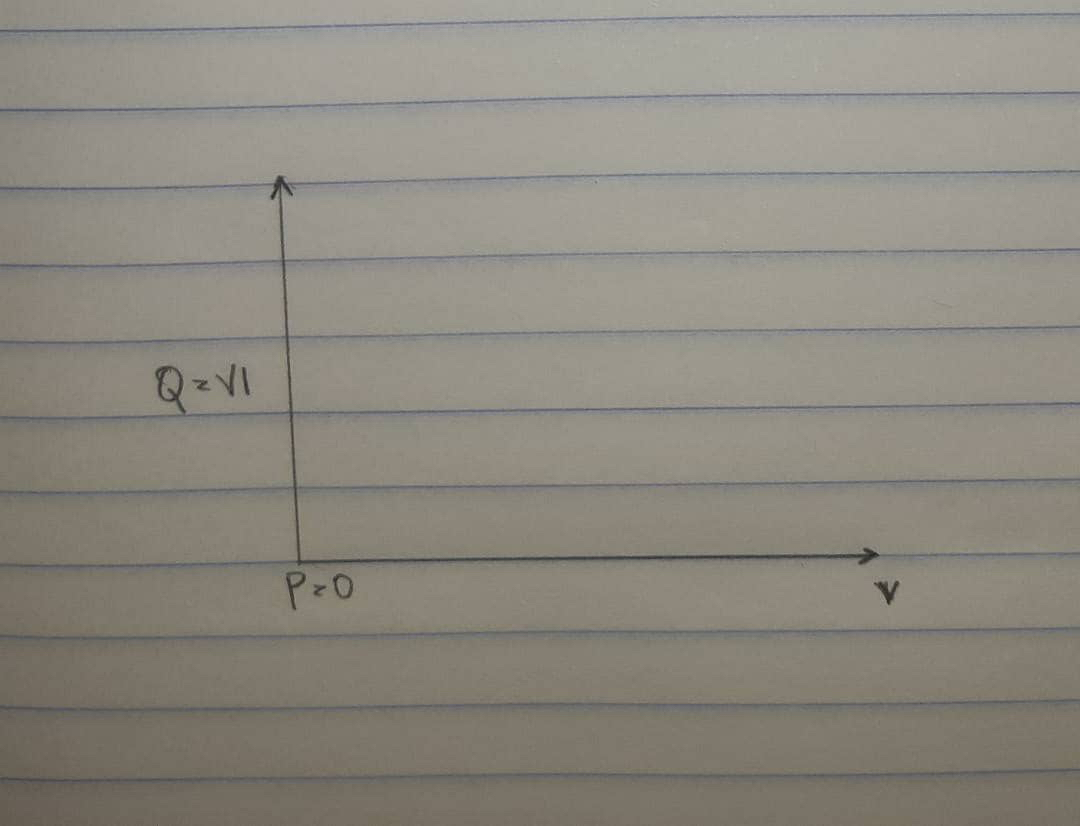 Q=VI
P=0
V